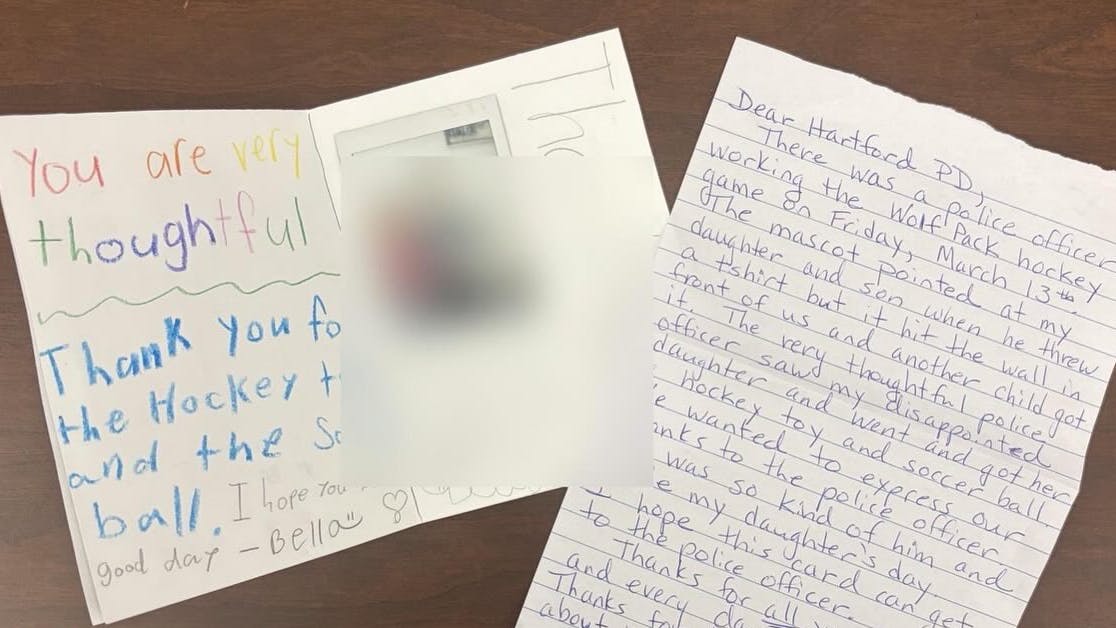 You are very
thoughtful
Thank you fo
the Hockey t
and the So
ball. I hope you
good day - Bella
Tho
Dear Hartford PD,
There was a police officer
working the Wolf Pack hockey
game on Friday, March 13th.
The mascot pointed at my
daughter and son when he threw
a tshirt but it hit the wall in
front of us and another child got
it. The very thoughtful police
officer saw my disappointed
daughter and went and got her
hockey toy and soccer ball.
e wanted to express our
anks to the police officer
was so kind of him and
e my daughter's day
I hope this card can get
to the police officer.
Thanks for all
and every da
Thanks fo
about